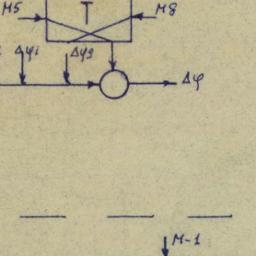 M5
T
M8
Δφi
Δφg
Δφ
M-1